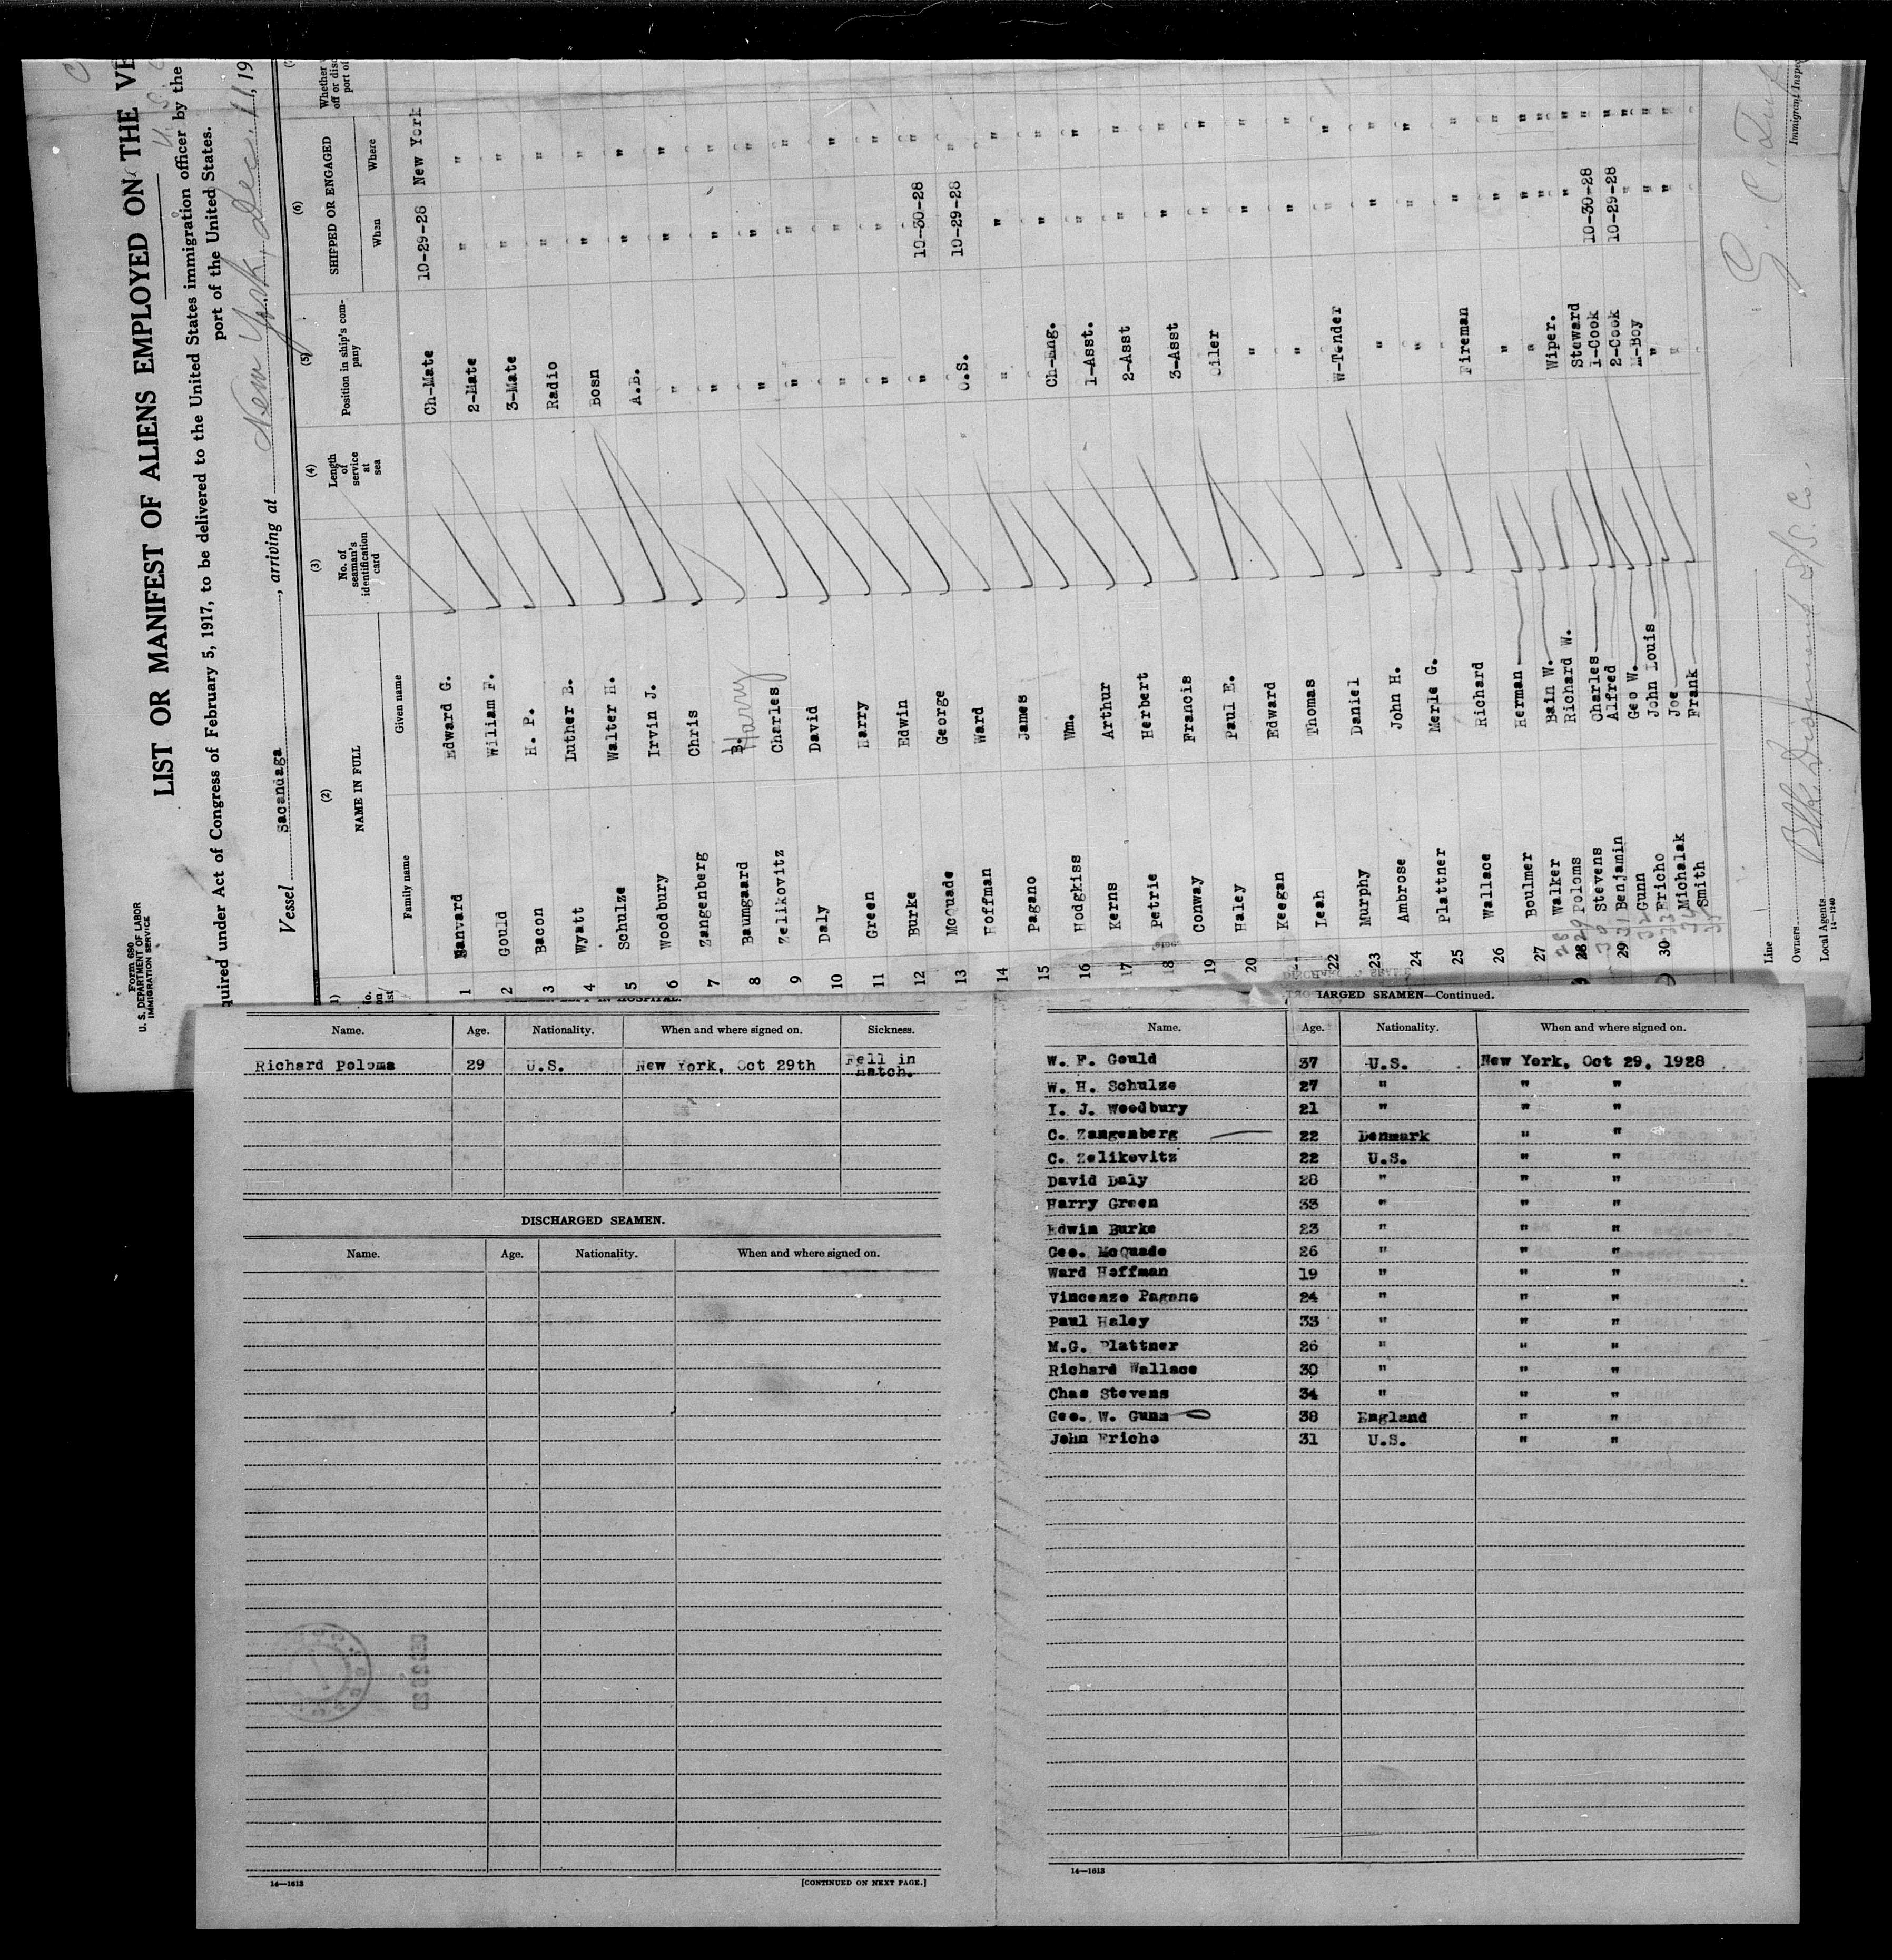 Form 680
U. S. DEPARTMENT OF LABOR
IMMIGRATION SERVICE
LIST OR MANIFEST OF ALIENS EMPLOYED ON THE VE
quired under Act of Congress of February 5, 1917, to be delivered to the United States immigration officer by the
port of the United States.
Vessel Sacandaga, arriving at New York, Dec. 11, 19
(2) (3) (4) (5) (6)
NAME IN FULL No. of seaman's identification card Length of service at sea Position in ship's company SHIPPED OR ENGAGED
Family name Given name When Where
1 Banvard Edward G. Ch-Mate 10-29-28 New York
2 Gould William F. 2-Mate " "
3 Bacon H. P. 3-Mate " "
4 Wyatt Luther B. Radio " "
5 Schulze Walter H. Bosn " "
6 Woodbury Irvin J. A.B. " "
7 Zangenberg Chris " " "
8 Baumgaard B. Harry " " "
9 Zelikovitz Charles " " "
10 Daly David " " "
11 Green Harry " " "
12 Burke Edwin " " "
13 McQuade George " 10-30-28 "
14 Hoffman Ward O.S. 10-29-28 "
15 Pagano James " " "
16 Hodgkiss Wm. Ch-Eng. " "
17 Kerns Arthur 1-Asst. " "
18 Petrie Herbert 2-Asst " "
19 Conway Francis 3-Asst " "
20 Haley Paul E. Oiler " "
Keegan Edward " " "
22 Leah Thomas " " "
23 Murphy Daniel W-Tender " "
24 Ambrose John H. " " "
25 Plattner Merle G. " " "
26 Wallace Richard Fireman " "
27 Boulmer Herman " " "
28 Walker Bain W. " " "
29 Poloms Richard W. Wiper. " "
30 Stevens Charles Steward " "
31 Benjamin Alfred 1-Cook 10-30-28 "
32 Gunn Geo W. 2-Cook 10-29-28 "
33 Ericho John Louis M-Boy " "
34 Michalak Joe " " "
35 Smith Frank " " "
Line
Owners
Local Agents
14-1240
Immigrant Inspe
Name. Age. Nationality. When and where signed on. Sickness.
Richard Poloms 29 U.S. New York, Oct 29th Fell in hatch.
DISCHARGED SEAMEN.
Name. Age. Nationality. When and where signed on.
14—1613 [CONTINUED ON NEXT PAGE.]
HARGED SEAMEN—Continued.
Name. Age. Nationality. When and where signed on.
W. F. Gould 37 U.S. New York, Oct 29, 1928
W. H. Schulze 27 " " "
I. J. Woodbury 21 " " "
C. Zangenberg 22 Denmark " "
C. Zelikovitz 22 U.S. " "
David Daly 28 " " "
Harry Green 33 " " "
Edwin Burke 23 " " "
Geo. McQuade 26 " " "
Ward Hoffman 19 " " "
Vincenzo Pagano 24 " " "
Paul Haley 33 " " "
M.G. Plattner 26 " " "
Richard Wallace 30 " " "
Chas Stevens 34 " " "
Geo. W. Gunn 38 England " "
John Ericho 31 U.S. " "
14—1613